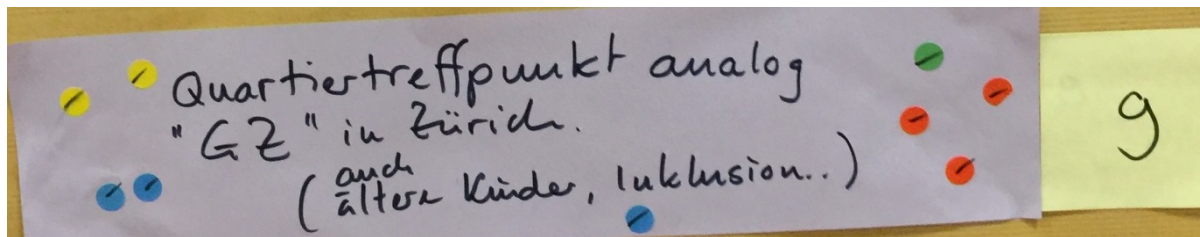 Quartiertreffpunkt analog
"GZ" in Zürich.
(auch
ältere Kinder, Inklusion..)
9